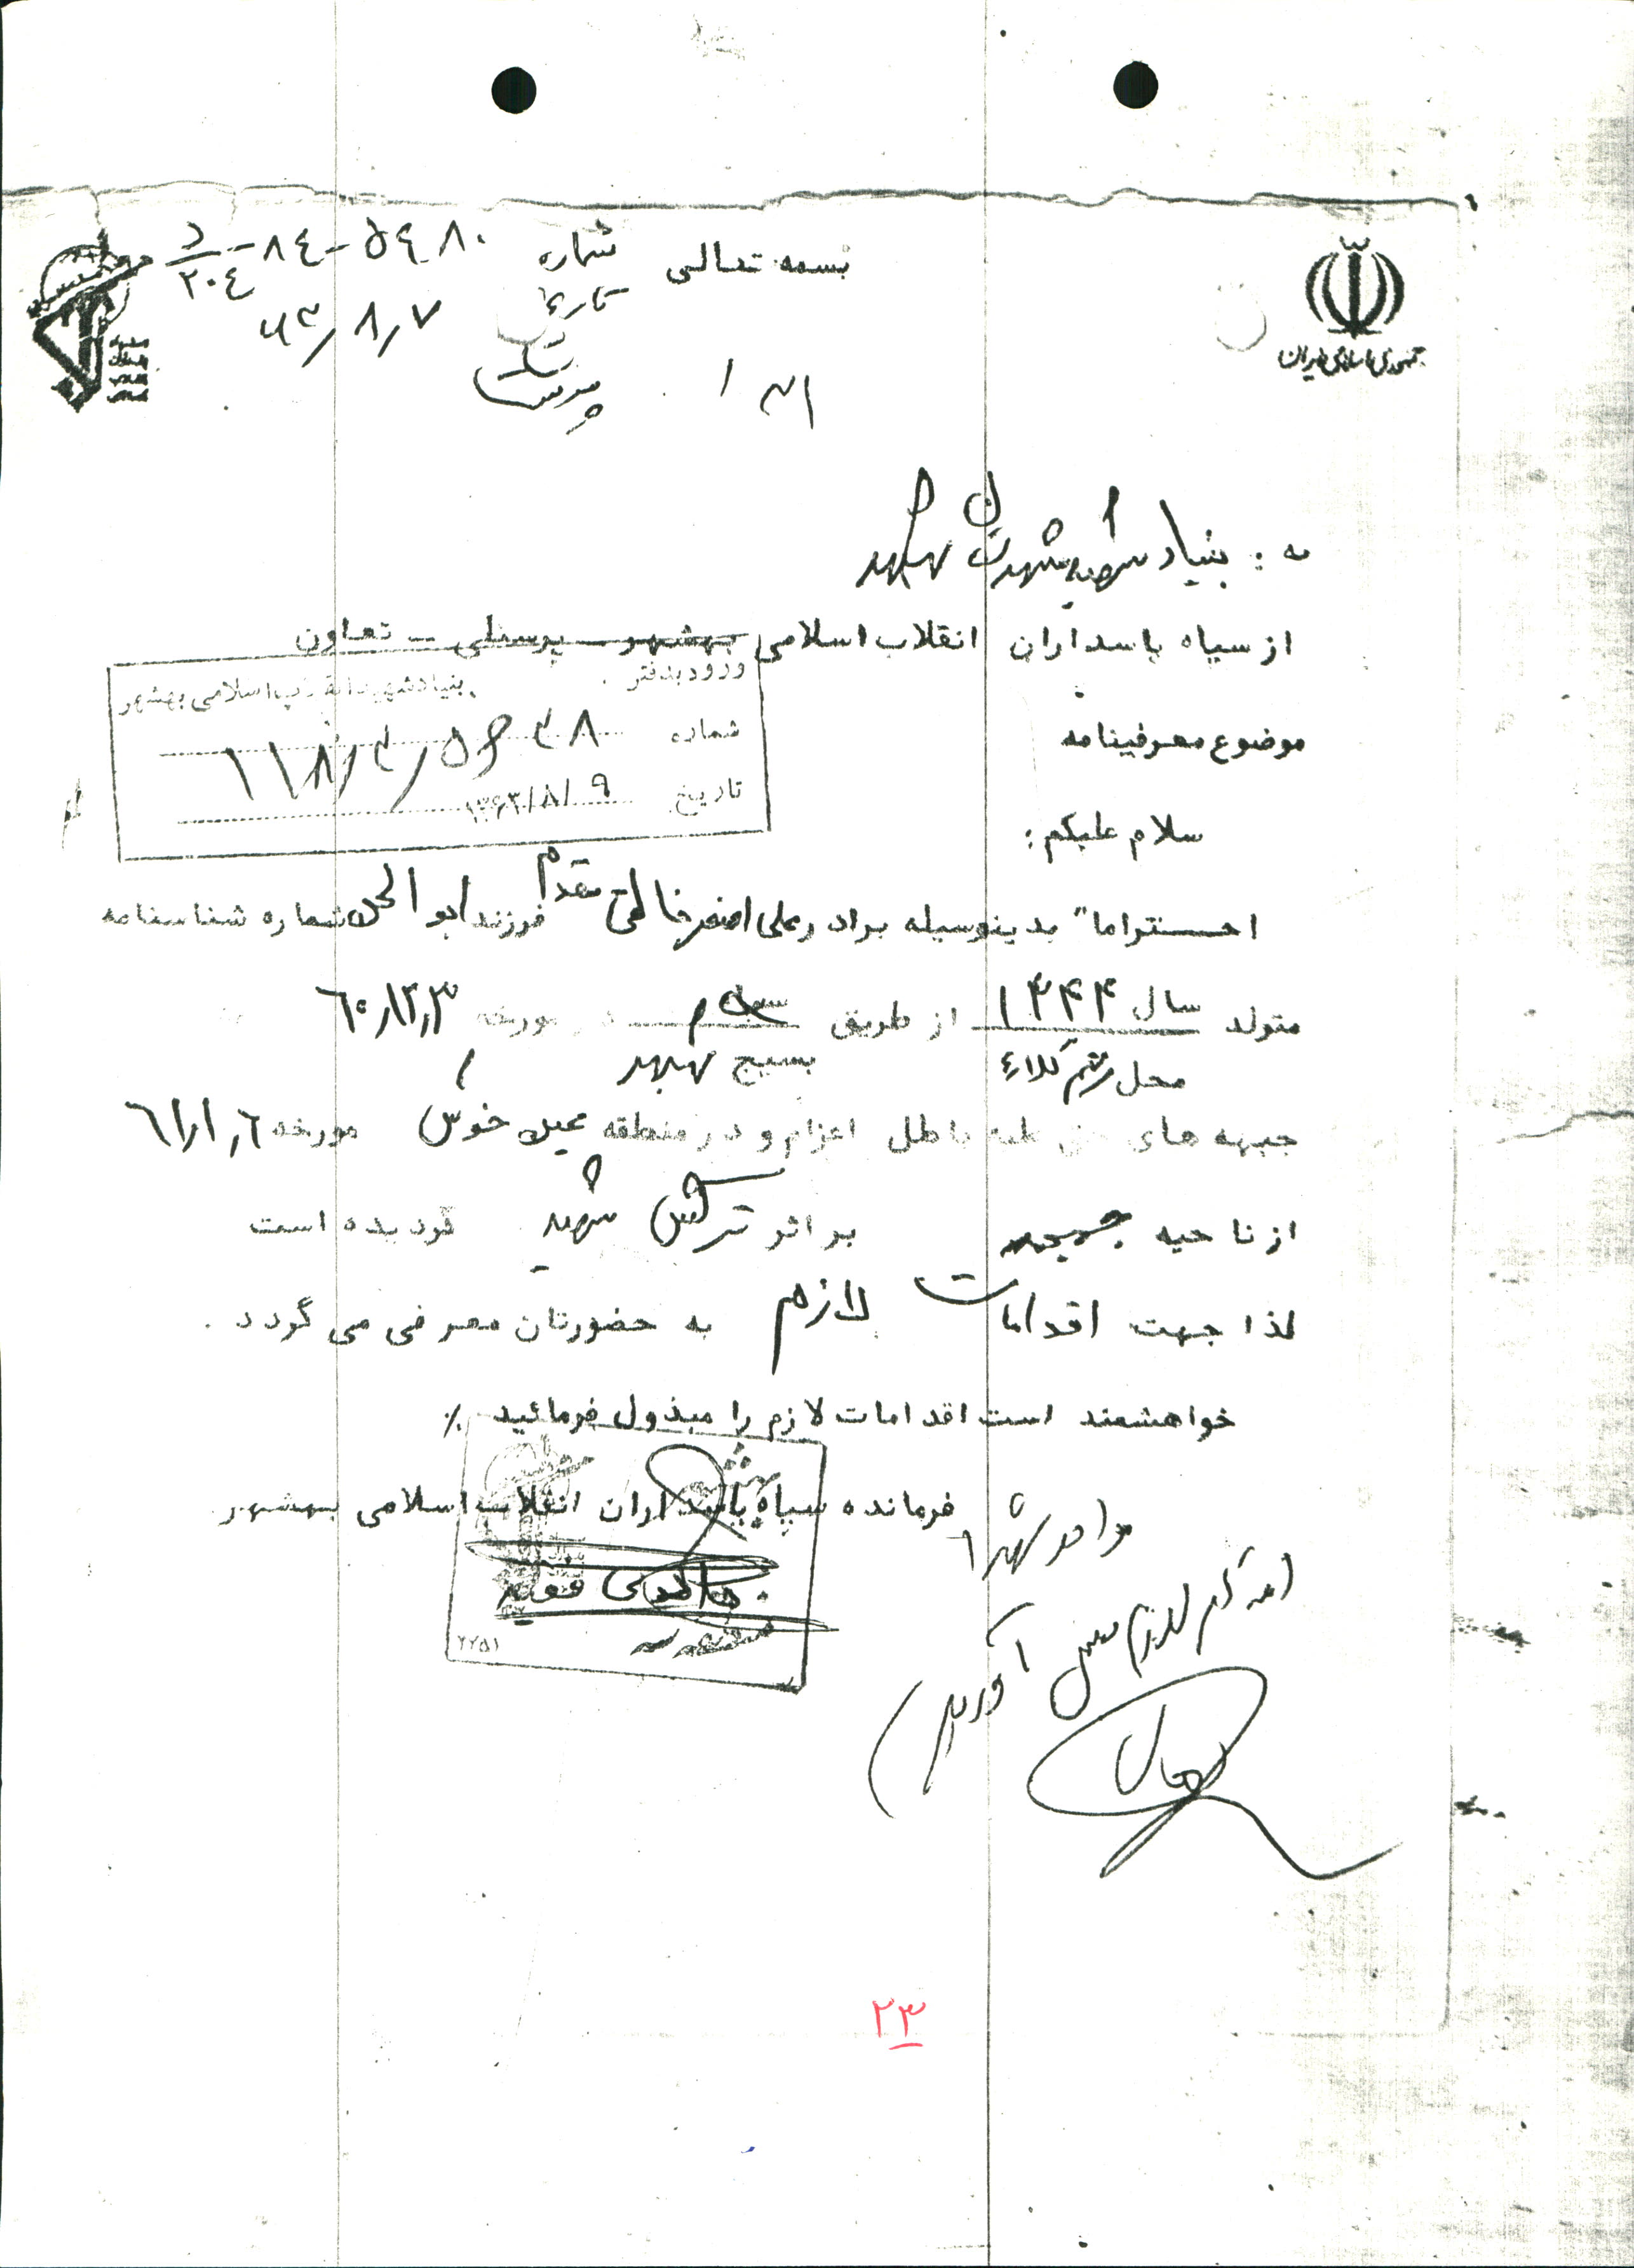 جمهوری اسلامی ایران
بسمه تعالی
شماره ۵۴۸۰-۸۴-د/۲۰۴
تاریخ ۶۳/۸/۷
به : بنیاد شهید بهشهر
از سپاه پاسداران انقلاب اسلامی بهشهر - پرسنلی - تعاون
ورود بدفتر بنیاد شهید انقلاب اسلامی بهشهر
شماره
تاریخ ۱۳۶۳/۸/۹
موضوع معرفینامه
سلام علیکم :
احتراما" بدینوسیله برادر علی اصغر خالقی مقدم فرزند ابوالحسن شماره شناسنامه
متولد سال ۱۳۴۴ از طریق در مورخه ۶۰/۱۲/۳
محل رستم کلاء بسیج بهشهر
جبهه های حق علیه باطل اعزام و در منطقه عین خوش مورخه ۶۱/۱/۶
از ناحیه بر اثر ترکش شهید گردیده است
لذا جهت اقدامات لازم به حضورتان معرفی می گردد .
خواهشمند است اقدامات لازم را مبذول فرمائید ٪
فرمانده سپاه پاسداران انقلاب اسلامی بهشهر
۲۲۵۱
۲۳